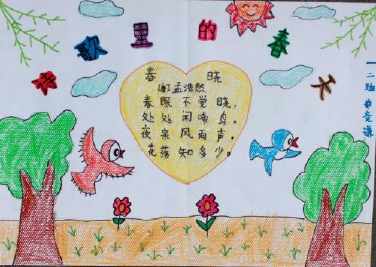 里的春天
春 晓
孟浩然
春眠不觉晓，
处处闻啼鸟。
夜来风雨声。
花落知多少。
一二班